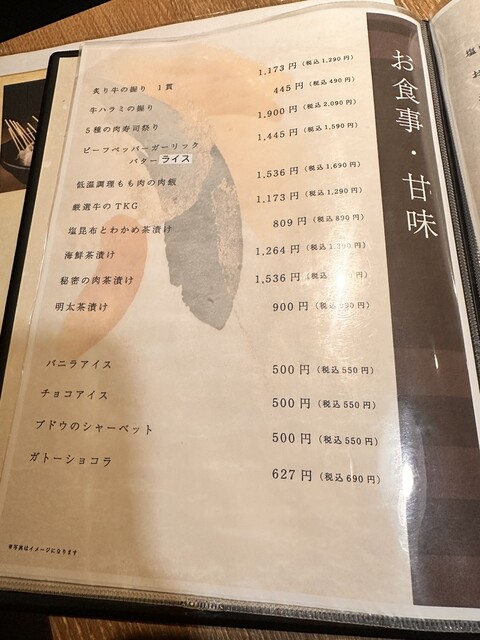 お食事・甘味
炙り牛の握り 1貫 1,173円(税込1,290円)
牛ハラミの握り 445円(税込490円)
5種の肉寿司祭り 1,900円(税込2,090円)
ビーフペッパーガーリック
バターライス 1,445円(税込1,590円)
低温調理もも肉の肉飯 1,536円(税込1,690円)
厳選牛のTKG 1,173円(税込1,290円)
塩昆布とわかめ茶漬け 809円(税込890円)
海鮮茶漬け 1,264円(税込1,390円)
秘密の肉茶漬け 1,536円(税込
明太茶漬け 900円(税込
バニラアイス 500円(税込550円)
チョコアイス 500円(税込550円)
ブドウのシャーベット 500円(税込550円)
ガトーショコラ 627円(税込690円)
※写真はイメージになります